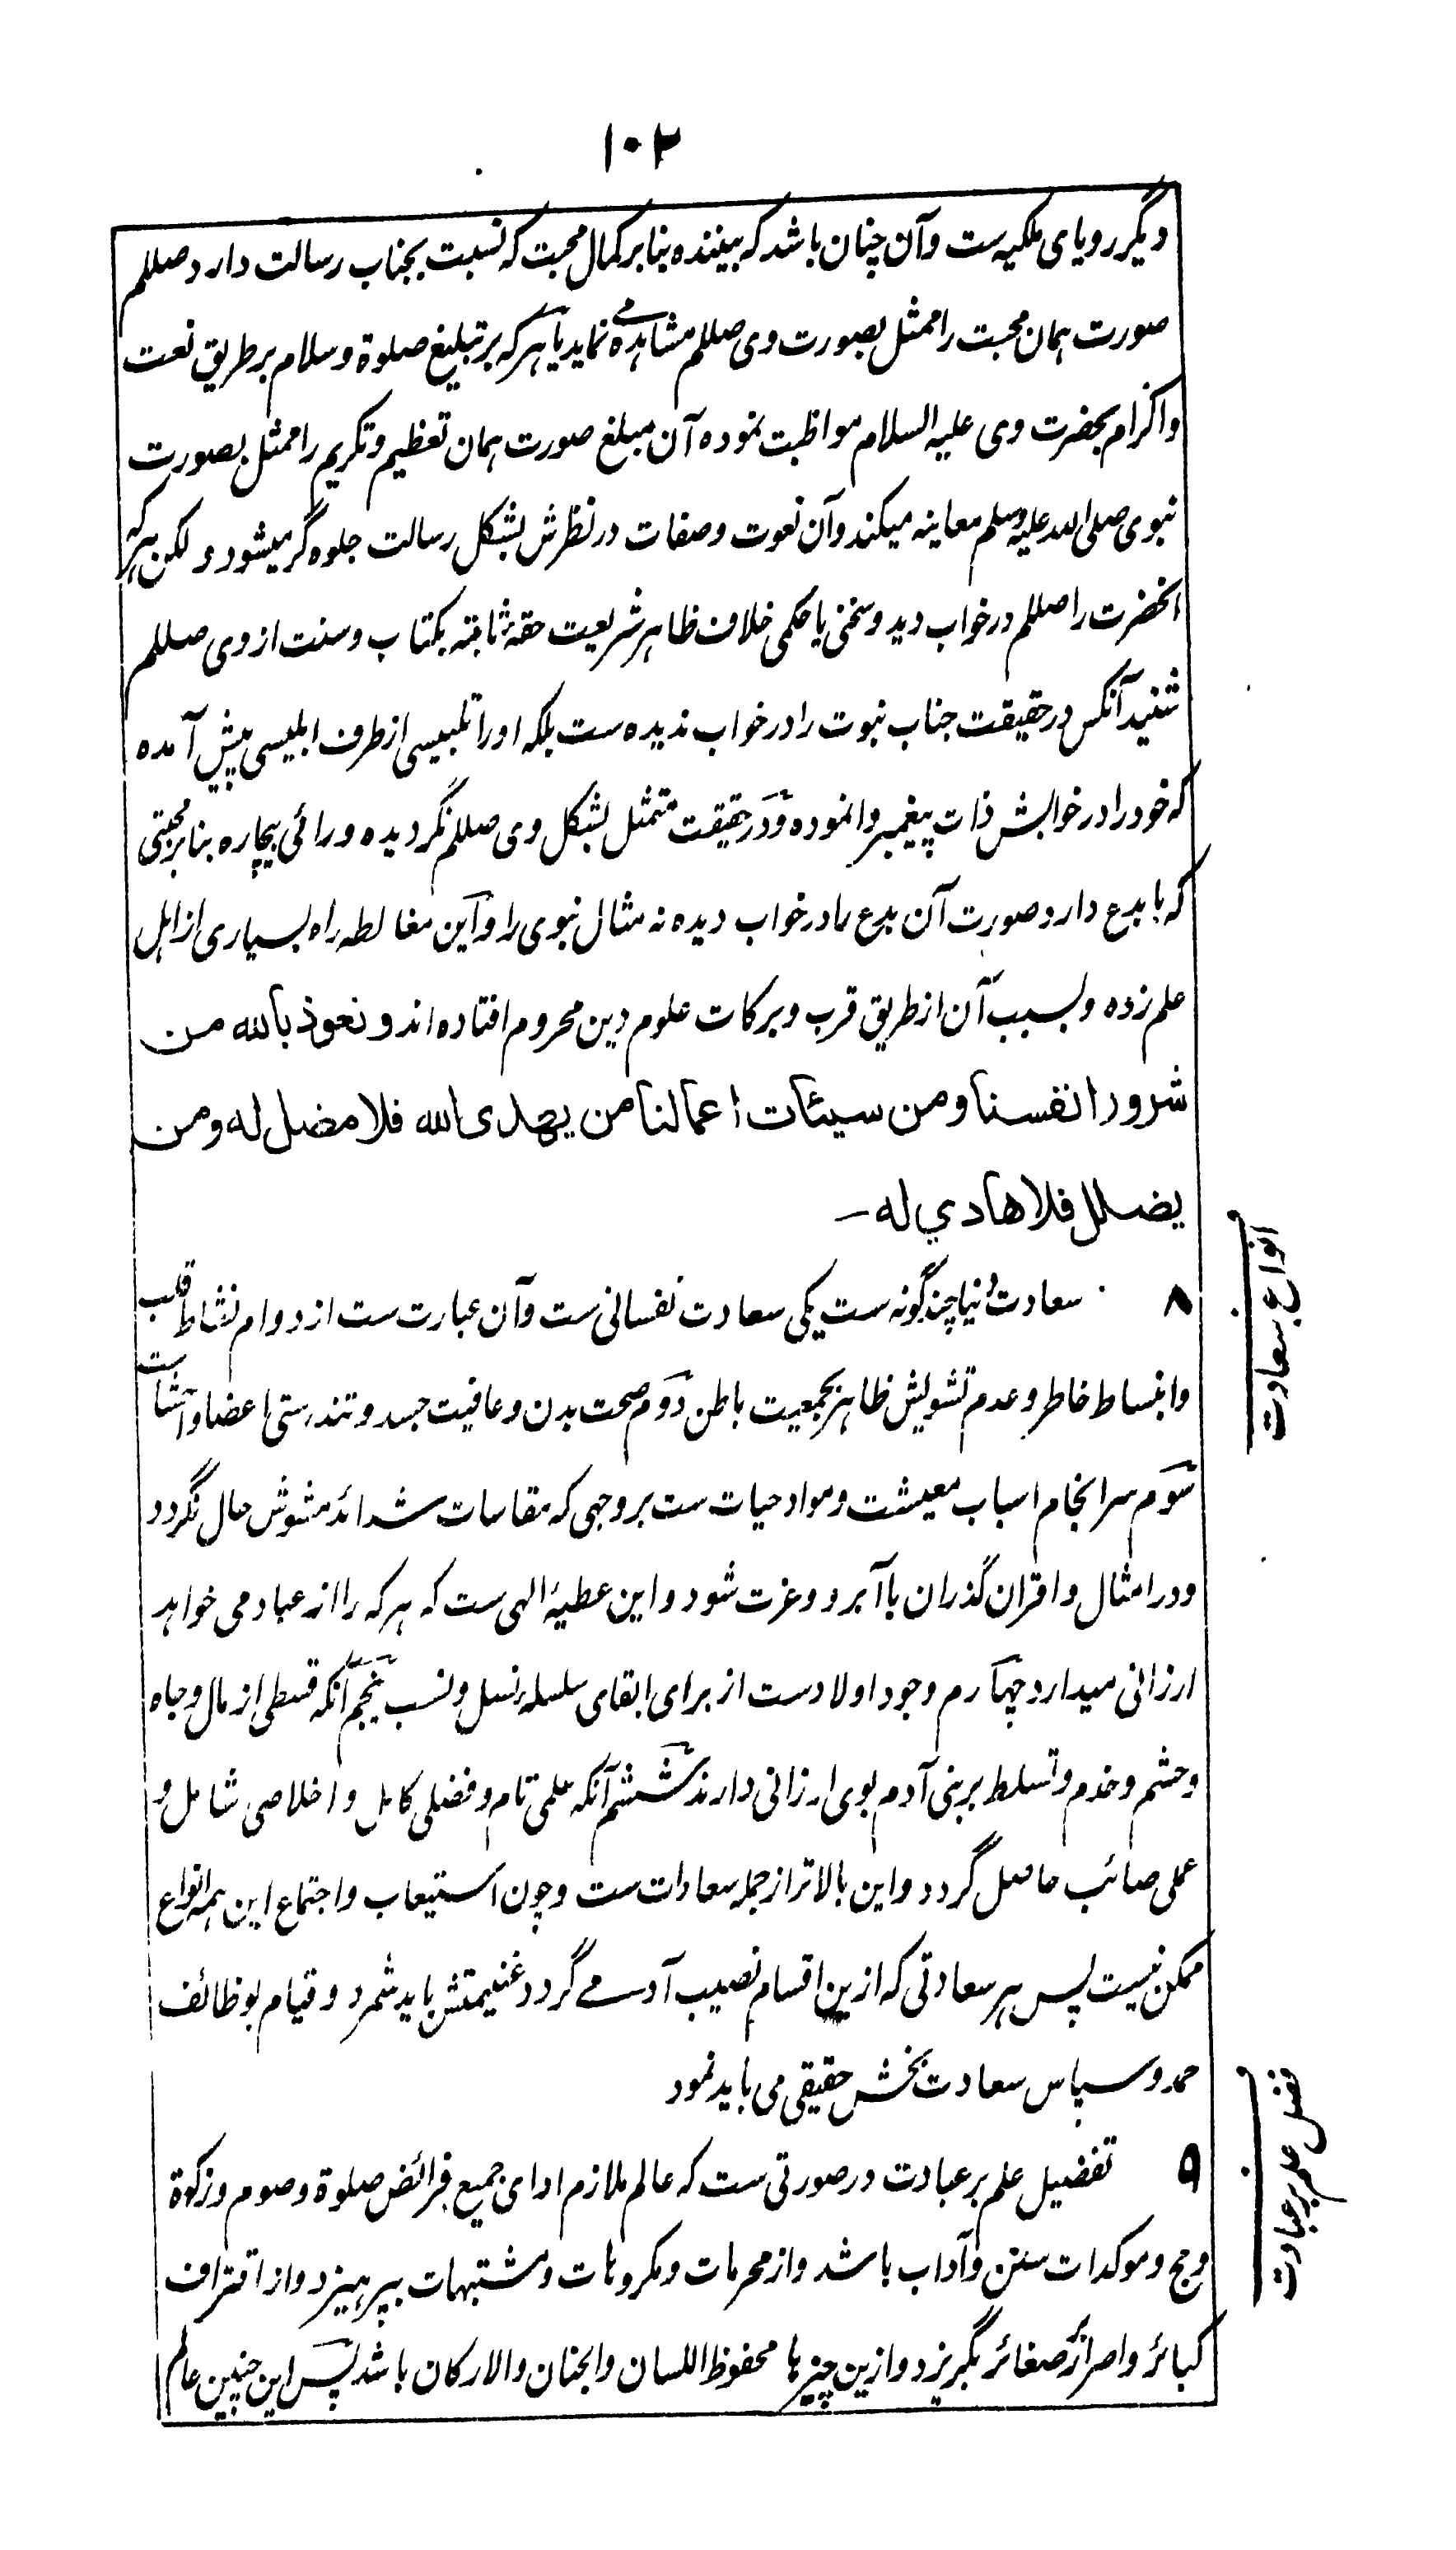 ۱۰۲
دیگر رویای ملکیه ست وآن چنان باشد که بیننده بنابر کمال محبت که نسبت بجناب رسالت دارد صللم
صورت همان محبت را ممثل بصورت وی صللم مشاهده می نماید یا هر که بر تبلیغ صلوة و سلام بر طریق نعت
واکرام بحضرت وی علیه السلام مواظبت نموده آن مبلغ صورت همان تعظیم وتکریم را ممثل بصورت
نبوی صلی الله علیه وسلم معاینه میکند وآن نعوت وصفات در نظرش بشکل رسالت جلوه گر میشود و لکن هر که
آنحضرت را صللم در خواب دید و سخنی یا حکمی خلاف ظاهر شریعت حقهٔ ثابته بکتاب وسنت از وی صللم
شنید آنکس در حقیقت جناب نبوت را در خواب ندیده ست بلکه او را تلبیسی از طرف ابلیسی پیش آمده
که خود را در خوابش ذات پیغمبر وانموده و در حقیقت متمثل بشکل وی صللم نگردیده و رائی بیچاره بنا بر محبتی
که با بدع دارد صورت آن بدع را در خواب دیده نه مثال نبوی را و این مغالطه راه بسیاری از اهل
علم زده و بسبب آن از طریق قرب و برکات علوم دین محروم افتاده اند و نعوذ بالله من
شرور انفسنا ومن سیئات اعمالنا من یهدی الله فلا مضل له ومن
یضلل فلا هادي له –
انواع سعادت
۸ سعادت دنیا چند گونه ست یکی سعادت نفسانی ست وآن عبارت ست از دوام نشاط قلب
وانبساط خاطر و عدم تشویش ظاهر بجمعیت باطن دوم صحت بدن و عافیت جسد و تندرستی اعضا و
سوم سرانجام اسباب معیشت و مواد حیات ست بر وجهی که مقاسات شدائد مشوش حال نگردد
و در امثال و اقران گذران با آبرو و عزت شود و این عطیهٔ الهی ست که هر که را از عباد می خواهد
ارزانی میدارد چهارم وجود اولاد ست از برای ابقای سلسلهٔ نسل و نسب پنجم آنکه قسطی از مال و جاه
وحشم و خدم و تسلط بر بنی آدم بوی ارزانی دارند ششم آنکه علمی تام و فضلی کامل و اخلاصی شامل و
عملی صائب حاصل گردد و این بالاتر از جمله سعادات ست و چون استیعاب و اجتماع این همه انواع
ممکن نیست پس هر سعادتی که ازین اقسام نصیب آدمی گردد غنیمتش باید شمرد و قیام بوظائف
حمد و سپاس سعادت بخش حقیقی می باید نمود
فضل علم بر عبادت
۹ تفضیل علم بر عبادت در صورتی ست که عالم ملازم ادای جمیع فرائض صلوة وصوم وزکوة
وحج وموکدات سنن وآداب باشد و از محرمات و مکروهات و مشتبهات بپرهیزد و از اقتراف
کبائر و اصرار بر صغائر بگریزد و ازین چیزها محفوظ اللسان والجنان والارکان باشد پس این چنین عالم